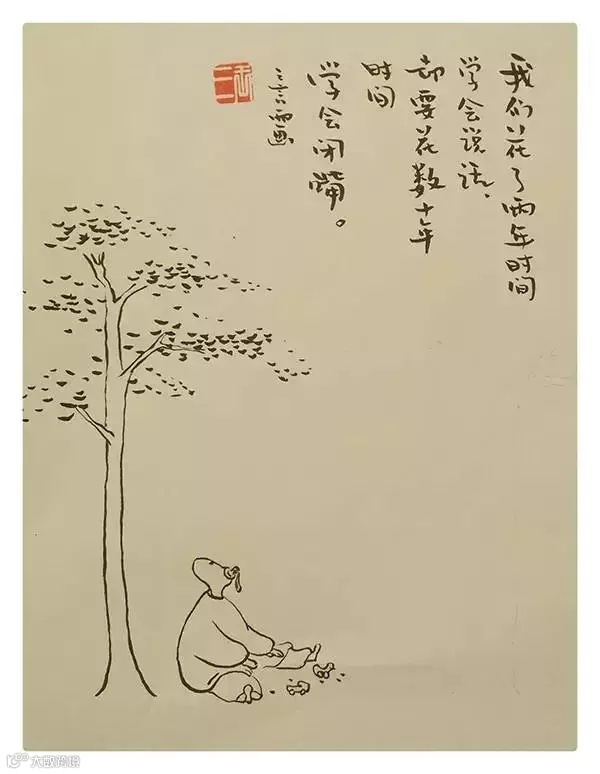 我们花了两年时间
学会说话、
却要花数十年
时间
学会闭嘴。